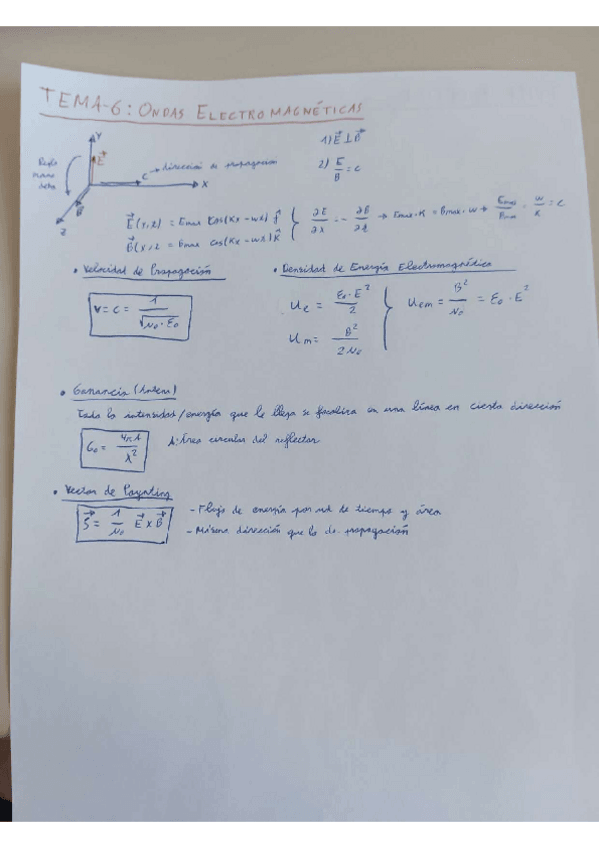 TEMA-6: ONDAS ELECTROMAGNÉTICAS
Y
E⃗
Regla mano dcha
c → dirección de propagación
X
B⃗
Z
1) E⃗ ⊥ B⃗
2) E/B = c
E⃗(x,t) = Emax cos(Kx - wt) ĵ
B⃗(x,t = Bmax cos(Kx - wt) k̂
∂E/∂x = - ∂B/∂t → Emax·K = Bmax·w → Emax/Bmax = w/K = c
• Velocidad de Propagación
v = c = 1/√(μ₀·ε₀)
• Densidad de Energía Electromagnética
Ue = ε₀·E²/2
Um = B²/2μ₀
Uem = B²/μ₀ = ε₀·E²
• Ganancia (Antena)
Toda la intensidad/energía que le llega se focaliza en una línea en cierta dirección
G₀ = 4πA/λ²
A: Área circular del reflector
• Vector de Poynting
S⃗ = 1/μ₀ E⃗ x B⃗
- Flujo de energía por ud de tiempo y área
- Misma dirección que la de propagación